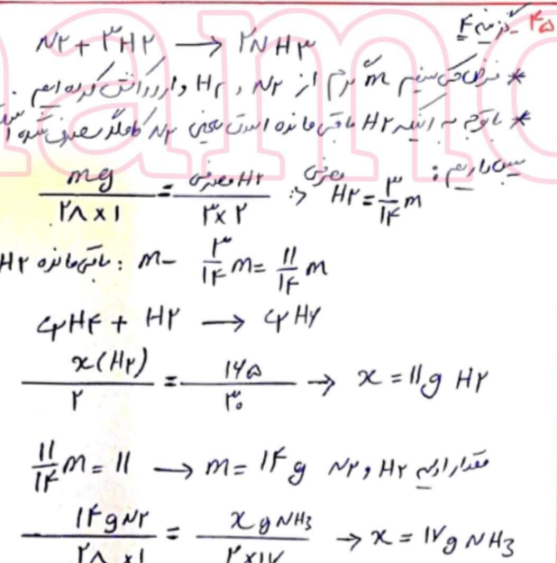 ۴۵- گزینه ۴
N۲ + ۳H۲ → ۲NH۳
* فرض می کنیم m گرم از N۲ و H۲ وارد واکنش کرده ایم.
* با توجه به اینکه H۲ باقی مانده است یعنی N۲ کاملا مصرف شده
پس داریم:
mg / ۲۸×۱ = مصرفی H۲ / ۳×۲ ⇒ مصرفی H۲ = ۳/۱۴ m
H۲ باقی مانده : m - ۳/۱۴ m = ۱۱/۱۴ m
C۲H۴ + H۲ → C۲H۶
x(H۲) / ۲ = ۱۶۵ / ۳۰ → x = ۱۱g H۲
۱۱/۱۴ m = ۱۱ → m = ۱۴ g N۲ و H۲ مقدار اولیه
۱۴gN۲ / ۲۸×۱ = xgNH3 / ۲×۱۷ → x = ۱۷g NH3